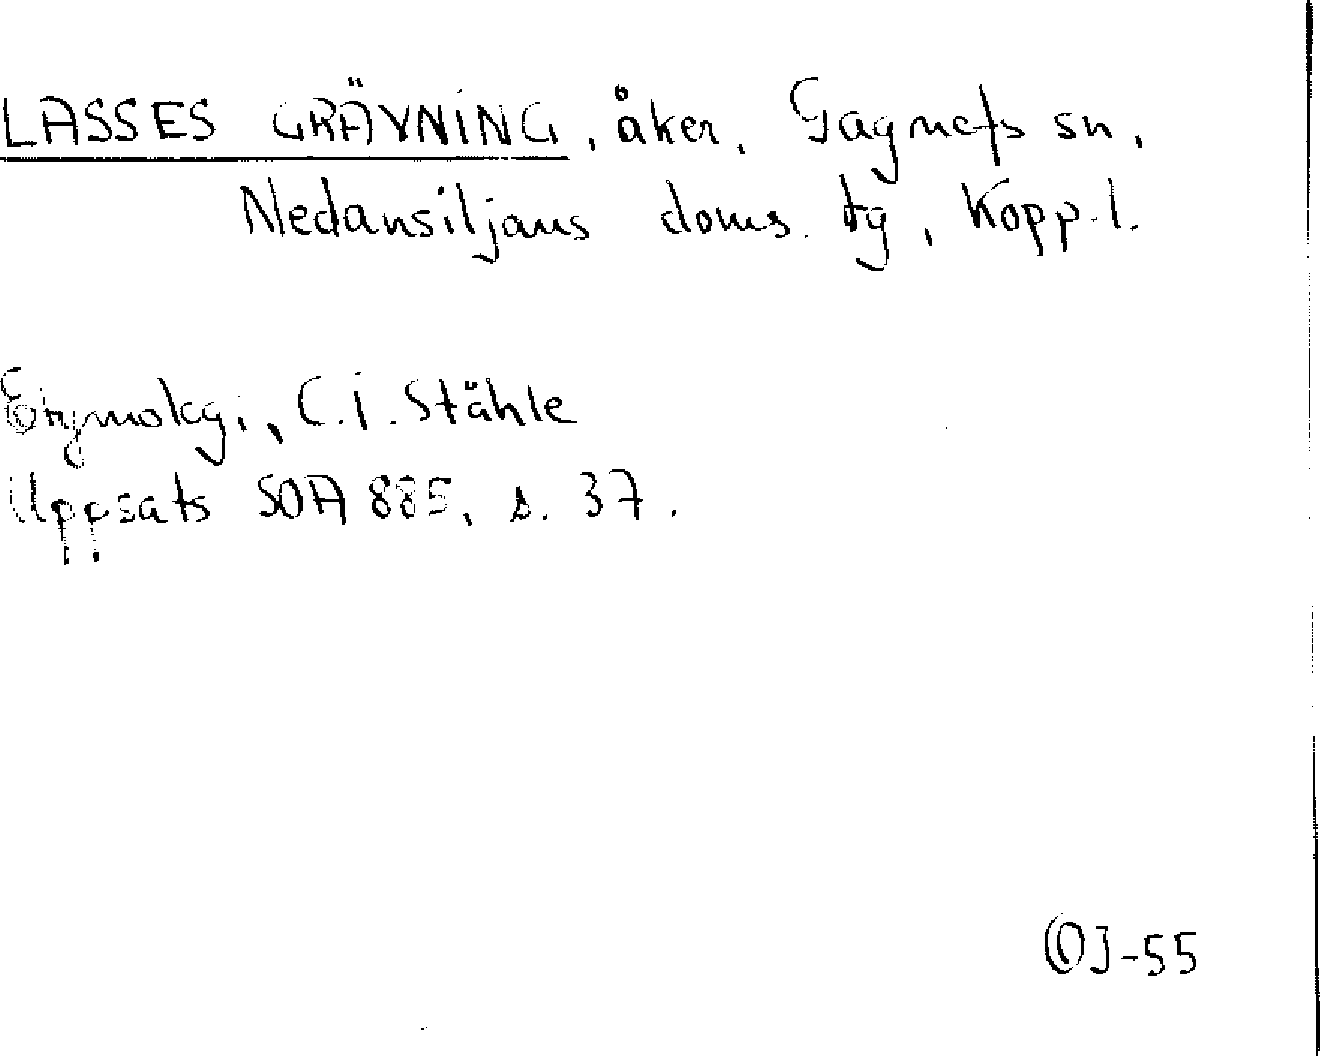 LASSES GRÄVNING, åker, Gagnefs sn,
Nedansiljans doms. tg, Kopp. l.
Etymologi, C.I. Ståhle
Uppsats SOA 885, s. 37.
OJ-55